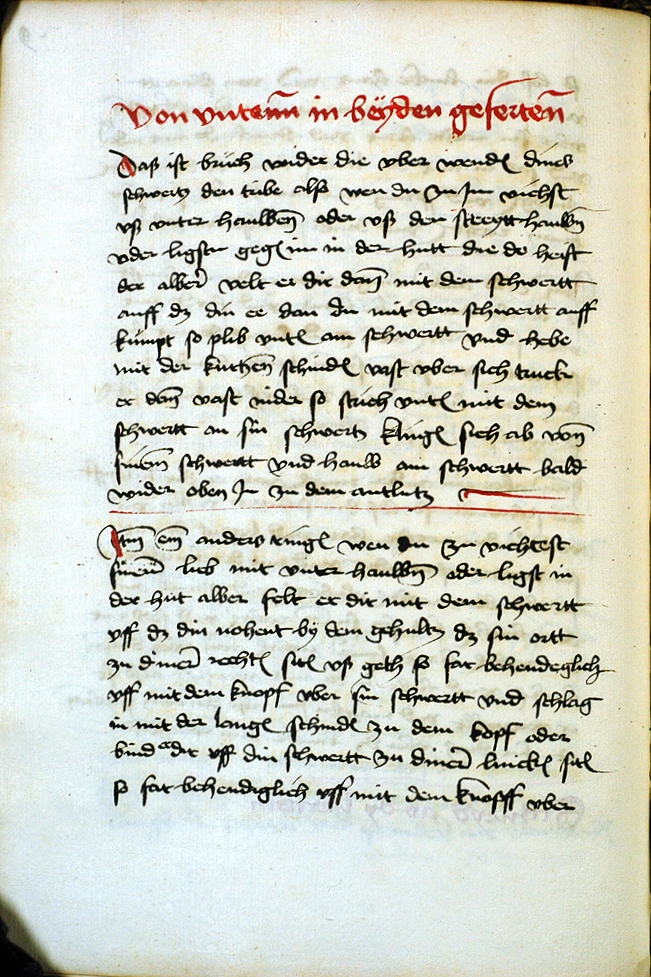 Von vntenn in beyden geferten
Daß ist bruch wider die vber wenden dines
schwertz den tribe also wen du zu Im vichst
vß vnter hauwen oder vß den streytt hauwen
oder ligstu gegen im in der hutt die do heist
der alber velt er dir dann mit dem schwertt
auff dz din ee dan du mit dem schwertt auff
kumpt so plib vnten am schwertt vnd hebe
mit der kurtzen schniden vast vber sich truckt
er dann vast nider so strich vnten mit dem
schwertt an sin schwertz klingen sich ab vonn
sinem schwertt vnd hauw am schwertt bald
wider oben In zu dem antlutz
Itm ein anders ringen wen du zu vichtest
sinem lieb mit vnter hauwen oder ligst in
der hut alber felt er dir mit dem schwertt
vff dz din nohent by dem gehultz dz sin ortt
zu diner rechten siten vß geth so far behendeglich
vff mit dem knopf vber sin schwertt vnd schlag
in mit der langen schniden zu dem kopf oder
bind er dir vff din schwertt zu diner lincken siten
so far behendiglich vff mit dem knopff vber